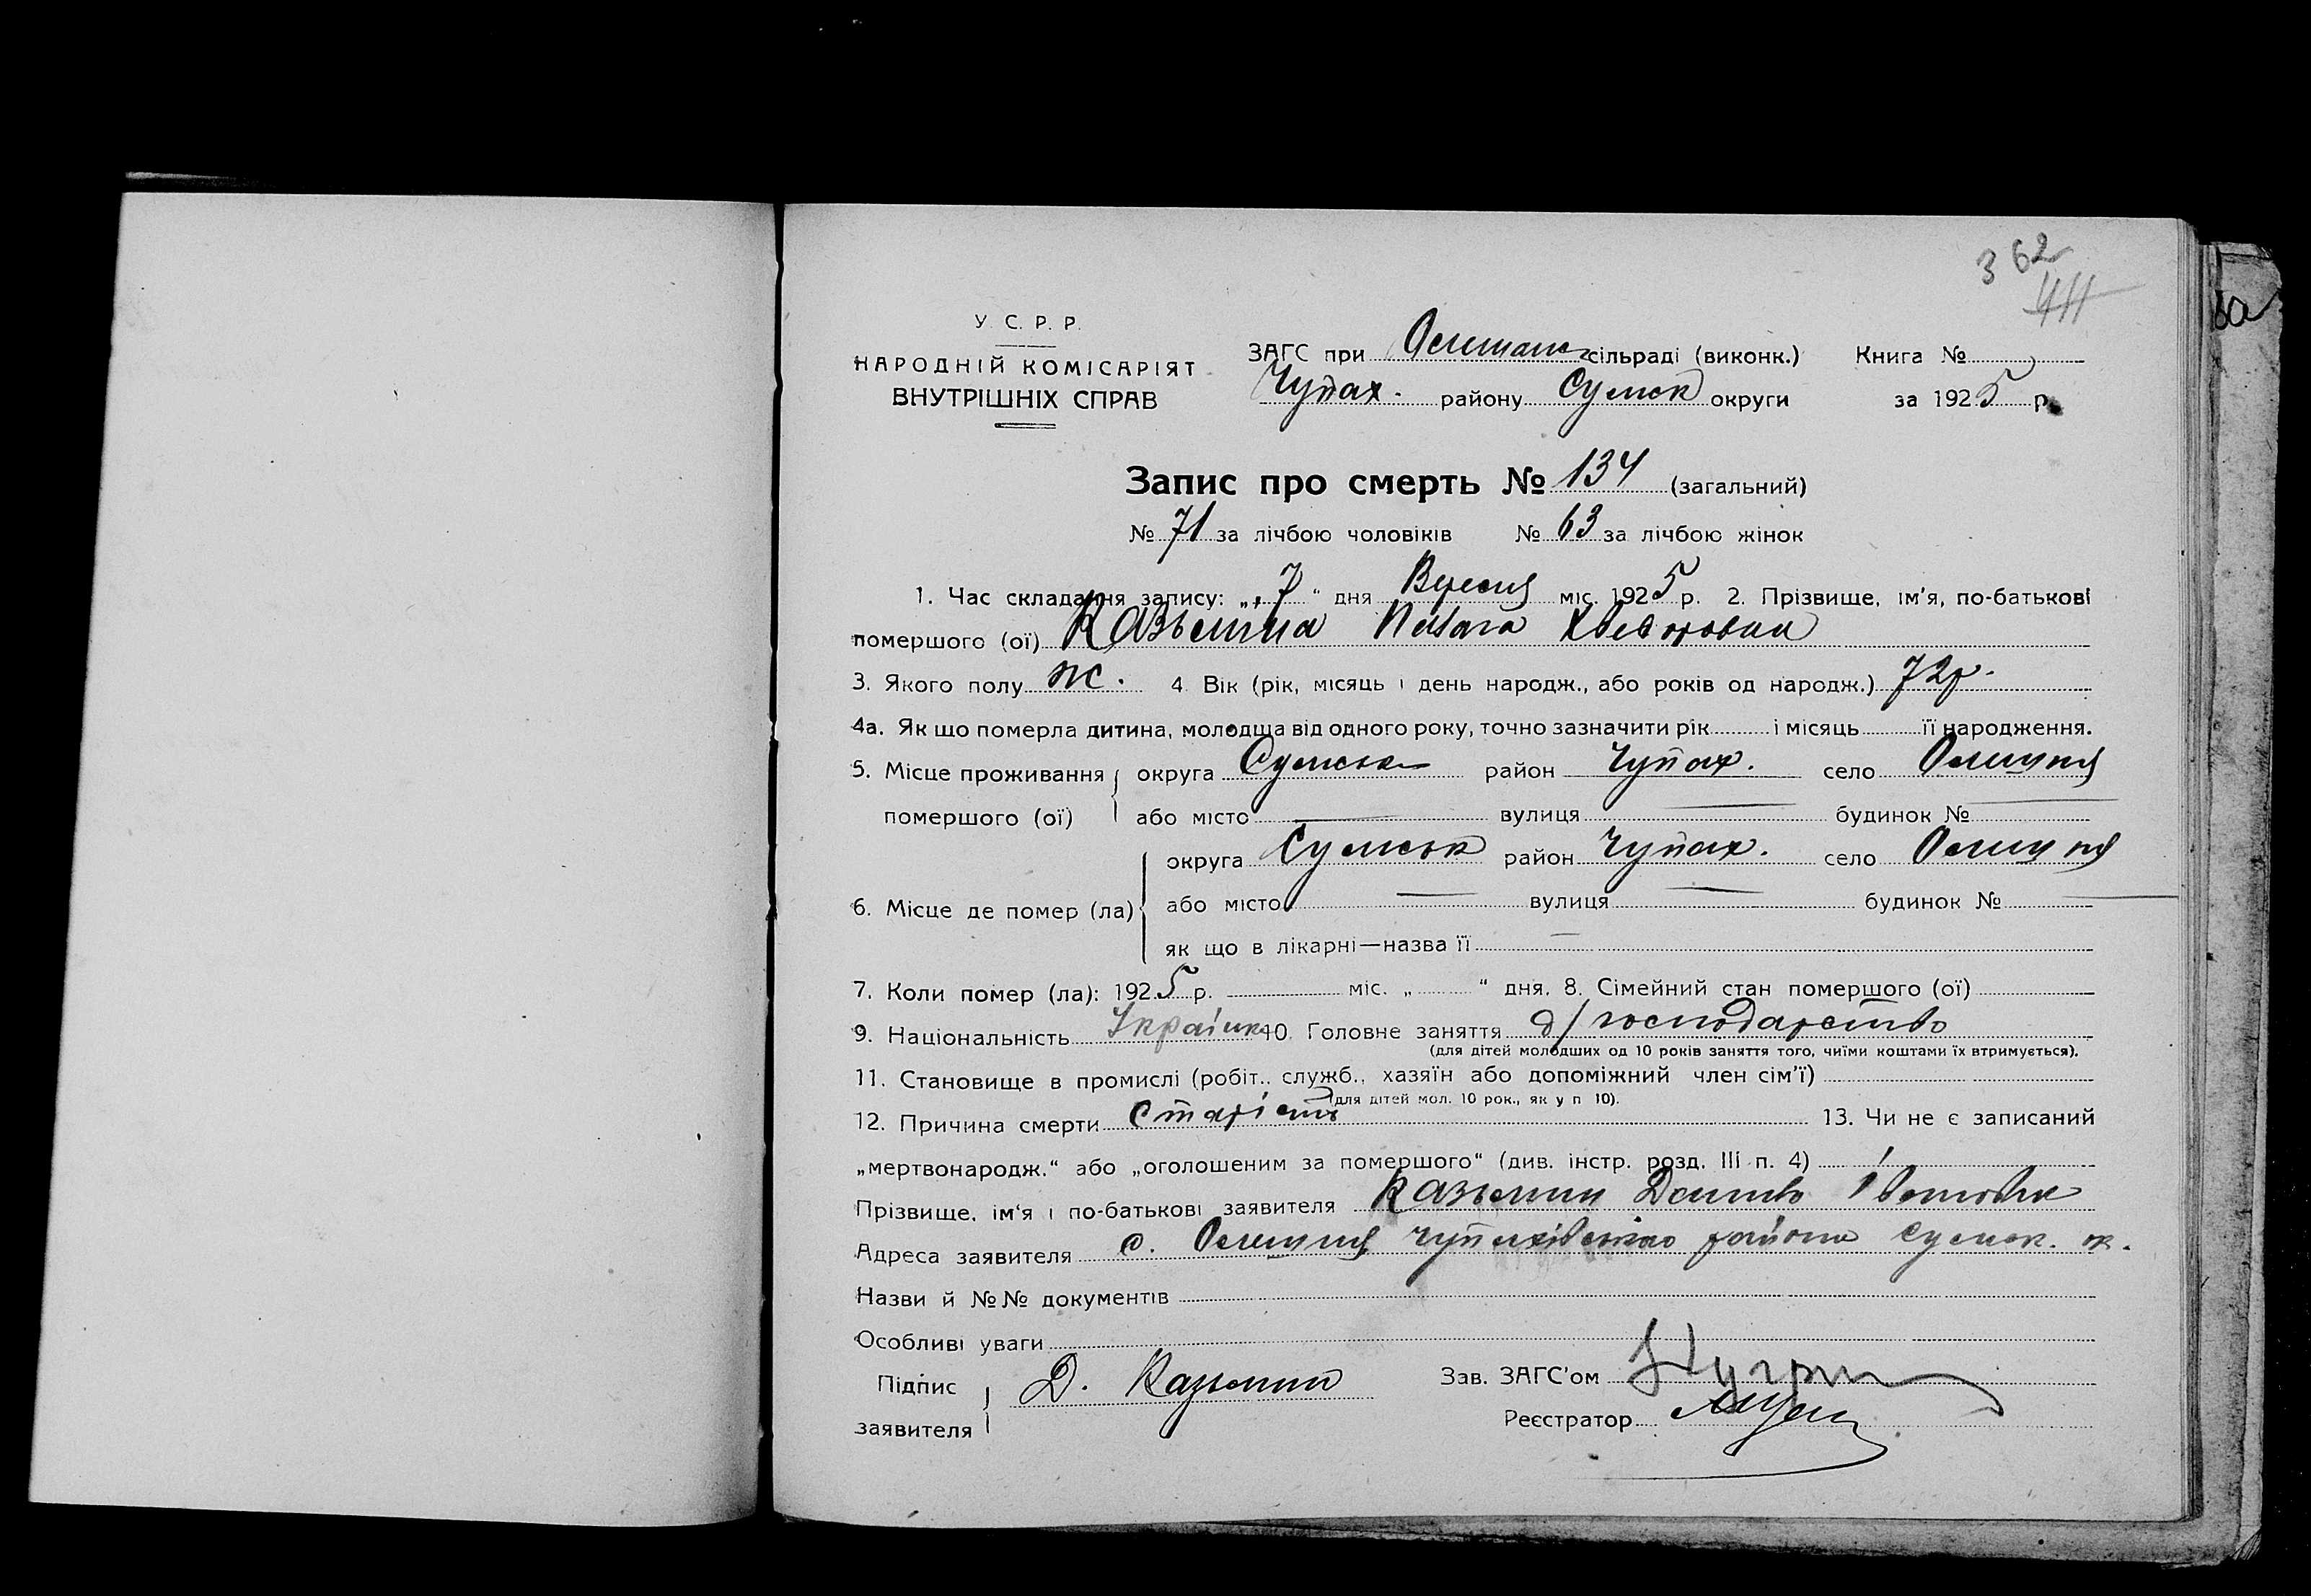 362
411
У. С. Р. Р.
НАРОДНІЙ КОМІСАРІЯТ
ВНУТРІШНІХ СПРАВ
ЗАГС при сільраді (виконк.) Книга №
Чупах. району Сумск округи за 1925 р.
Запис про смерть № 134 (загальний)
№ 71 за лічбою чоловіків № 63 за лічбою жінок
1. Час складання запису: „7“ дня Вересня міс. 1925 р. 2. Прізвище, ім'я, по-батькові
помершого (ої) Казьмина
3. Якого полу ж. 4. Вік (рік, місяць і день народж., або років од народж.) 72р.
4а. Як що померла дитина, молодща від одного року, точно зазначити рік і місяць її народження.
5. Місце проживання округа Сумськ район Чупах. село Олешня
помершого (ої) або місто вулиця будинок №
округа Сумськ район Чупах. село Олешня
6. Місце де помер (ла) або місто вулиця будинок №
як що в лікарні—назва її
7. Коли помер (ла): 1925 р. міс. „ “ дня. 8. Сімейний стан помершого (ої)
9. Національність 10. Головне заняття д/господарство
(для дітей молодших од 10 років заняття того, чиїми коштами їх втримується).
11. Становище в промислі (робіт., служб., хазяїн або допоміжний член сім'ї)
(для дітей мол. 10 рок., як у п 10).
12. Причина смерти старість 13. Чи не є записаний
„мертвонародж.“ або „оголошеним за помершого“ (див. інстр. розд. III п. 4)
Прізвище, ім'я і по-батькові заявителя Казьмин
Адреса заявителя с. Олешня Чупахівського района Сумск. ок.
Назви й №№ документів
Особливі уваги
Підпис
заявителя Д. Казьмин
Зав. ЗАГС'ом
Реєстратор